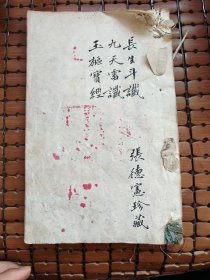 長生斗讖
九天雷讖
玉樞寶經
張德憲珍藏